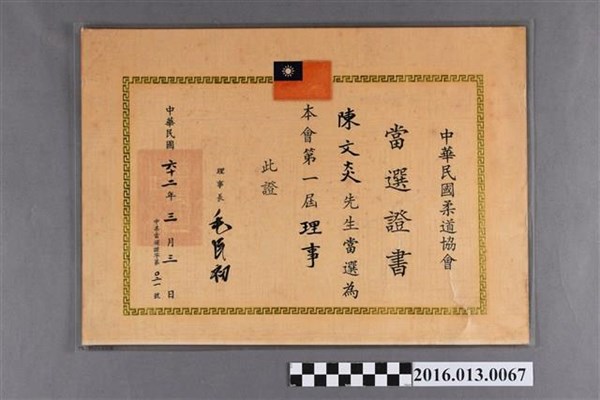 中華民國柔道協會
當選證書
陳文炎先生當選為
本會第一屆理事
此證
理事長 毛良初
中華民國六十二年三月三日
號
2016.013.0067